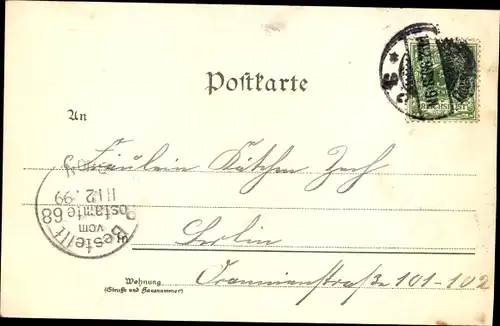 Postkarte
REICHSPOST
An
Fräulein Käthen Zech
in Berlin
Wohnung
(Straße und Hausnummer)
Oranienstraße 101-102
Bestellt
vom
Postamte 68
12.99